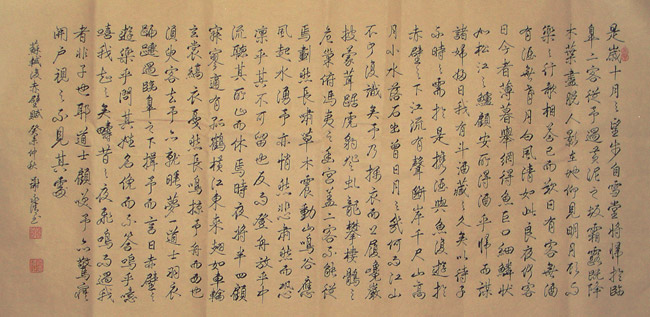 是歲十月之望步自雪堂將歸於臨
皋二客從予過黃泥之坂霜露既降
木葉盡脫人影在地仰見明月顧而
樂之行歌相答已而歎曰有客無酒
有酒無肴月白風清如此良夜何客
曰今者薄暮舉網得魚巨口細鱗狀
如松江之鱸顧安所得酒乎歸而謀
諸婦婦曰我有斗酒藏之久矣以待子
不時之需於是攜酒與魚復遊於
赤壁之下江流有聲斷岸千尺山高
月小水落石出曾日月之幾何而江山
不可復識矣予乃攝衣而上履巉巖
披蒙茸踞虎豹登虯龍攀棲鶻之
危巢俯馮夷之幽宮蓋二客不能從
焉劃然長嘯草木震動山鳴谷應
風起水湧予亦悄然而悲肅然而恐
凜乎其不可留也反而登舟放乎中
流聽其所止而休焉時夜將半四顧
寂寥適有孤鶴橫江東來翅如車輪
玄裳縞衣戛然長鳴掠予舟而西也
須臾客去予亦就睡夢一道士羽衣
蹁躚過臨皋之下揖予而言曰赤壁之
遊樂乎問其姓名俛而不答嗚乎噫
嘻我知之矣疇昔之夜飛鳴而過我
者非子也耶道士顧笑予亦驚寤
開戶視之不見其處
蘇軾後赤壁賦 癸未仲秋